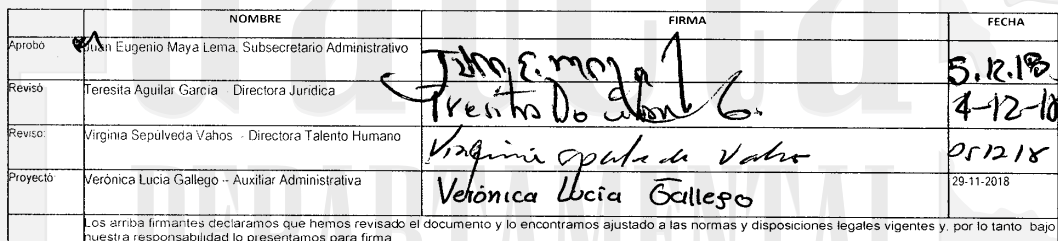 NOMBRE FIRMA FECHA
Aprobó Juan Eugenio Maya Lema, Subsecretario Administrativo 5.12.18
Revisó Teresita Aguilar García - Directora Jurídica 4-12-18
Revisó: Virginia Sepúlveda Vahos - Directora Talento Humano Virginia Sepulveda Vahos 051218
Proyectó Verónica Lucía Gallego -- Auxiliar Administrativa Verónica Lucía Gallego 29-11-2018
Los arriba firmantes declaramos que hemos revisado el documento y lo encontramos ajustado a las normas y disposiciones legales vigentes y, por lo tanto bajo
nuestra responsabilidad lo presentamos para firma